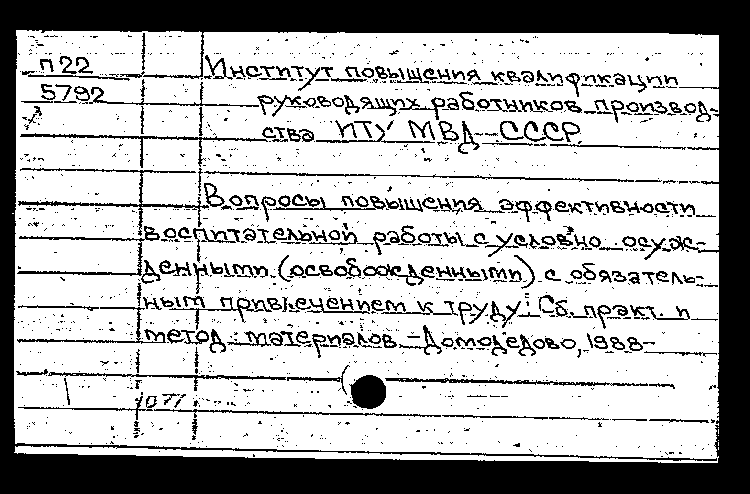 п22 Институт повышения квалификации
5792 руководящих работников производ-
ства ИТУ МВД СССР
Вопросы повышения эффективности
воспитательной работы с условно осуж-
денными (освобожденными) с обязатель-
ным привлечением к труду: Сб. практ. и
метод. материалов. - Домодедово, 1988-
1077